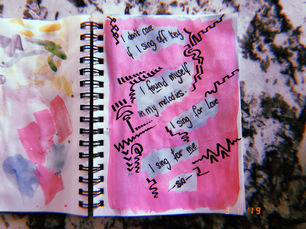 I don't care
if I sing off key
I found myself
in my melodies.
I sing for love
I sing for me
-sia-
19